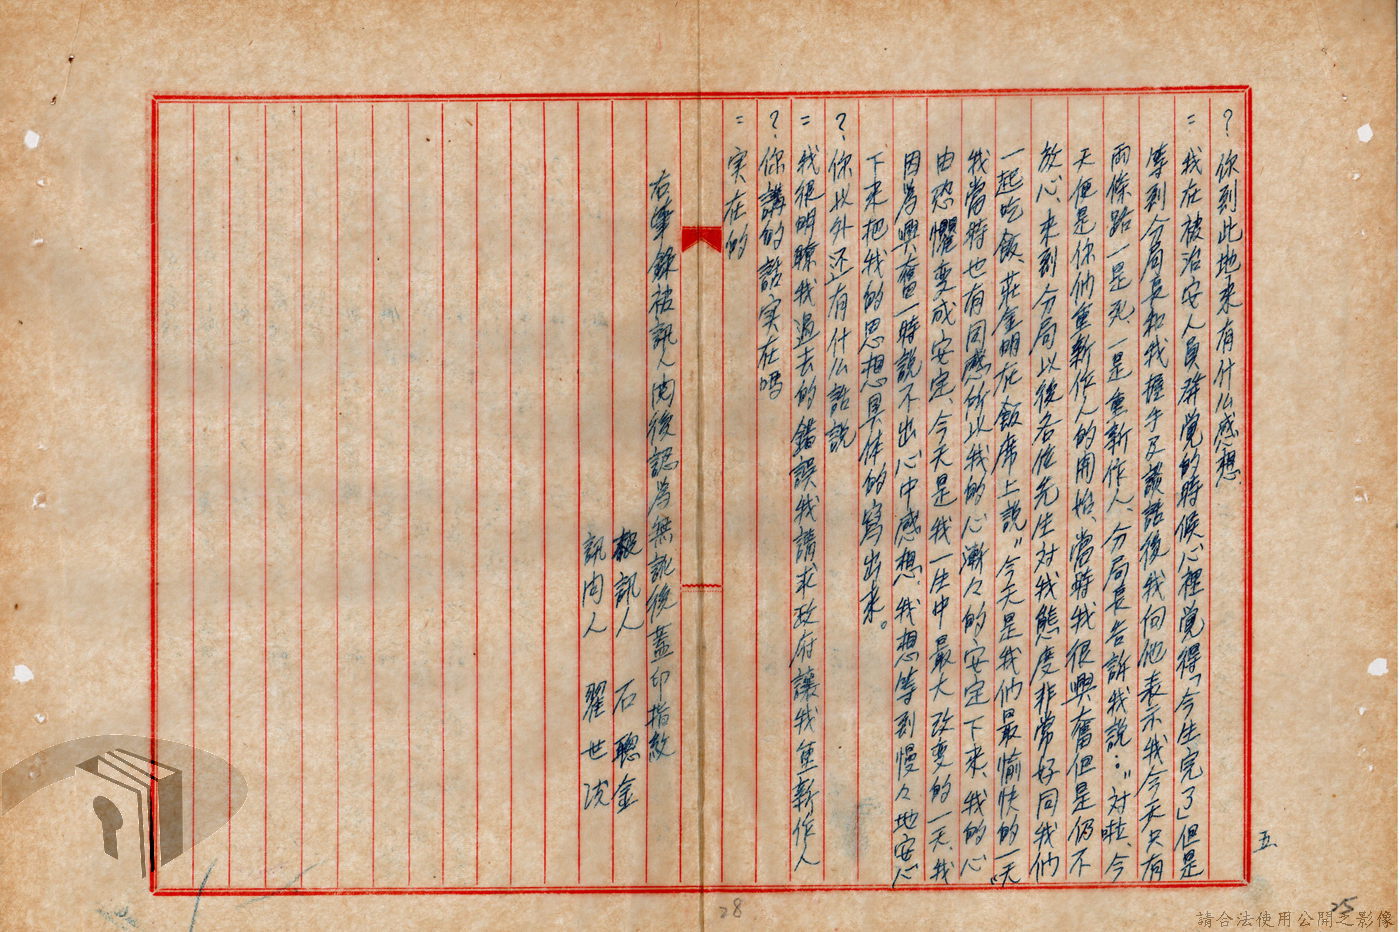 ？你到此地來有什么感想.
=我在被治安人員發覚的時候心裡覚得「今生完了」但是
等到分局長和我握手及談話後我向他表示我今天只有
兩條路一是死、一是重新作人、分局長告訴我説：〝対啦、今
天便是你們重新作人的開始、當時我很興奮但是仍不
放心、来到分局以後各位先生対我態度非常好同我們
一起吃飯、莊金明在飯席上説〝今天是我們最愉快的一天〞
我當時也有同感所以我的心漸々的安定下来、我的心
由恐懼变成安定、今天是我一生中最大改变的一天、我
因為興奮一時説不出心中感想、我想等到慢々地安心
下来把我的思想具体的寫出来。
？你以外还有什么話説
=我很明瞭我過去的錯誤我請求政府讓我重新作人
？你講的話実在嗎
=実在的
右筆錄被訊人閱後認為無訛後蓋印指紋
被訊人 石聰金
訊问人 翟世
五
28
25
請合法使用公開之影像